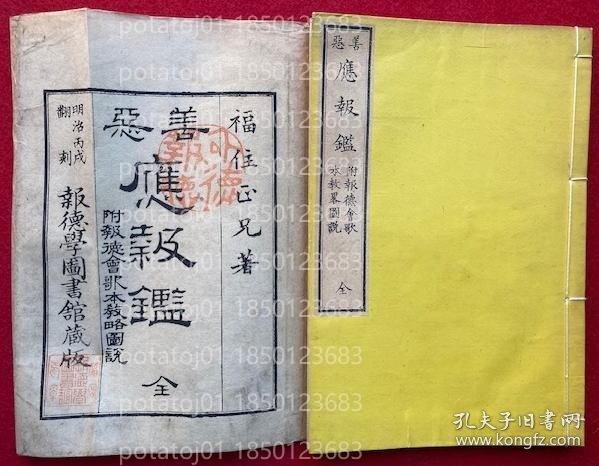 福住正兄著
善惡
應報鑑
附報德會歌本教略圖説
全
明治丙戌
翻刻
報德學圖書館藏版
善惡
應報鑑
附報德會歌
本教畧圖説
全
potatoj01 1850123683
potatoj01 1850123683
potatoj01 1850123683
potatoj01 1850123683
potatoj01 1850123683
potatoj01 1850123683
potatoj01 1850123683
potatoj01 1850123683
potatoj01 1850123683
孔夫子旧书网
www.kongfz.com